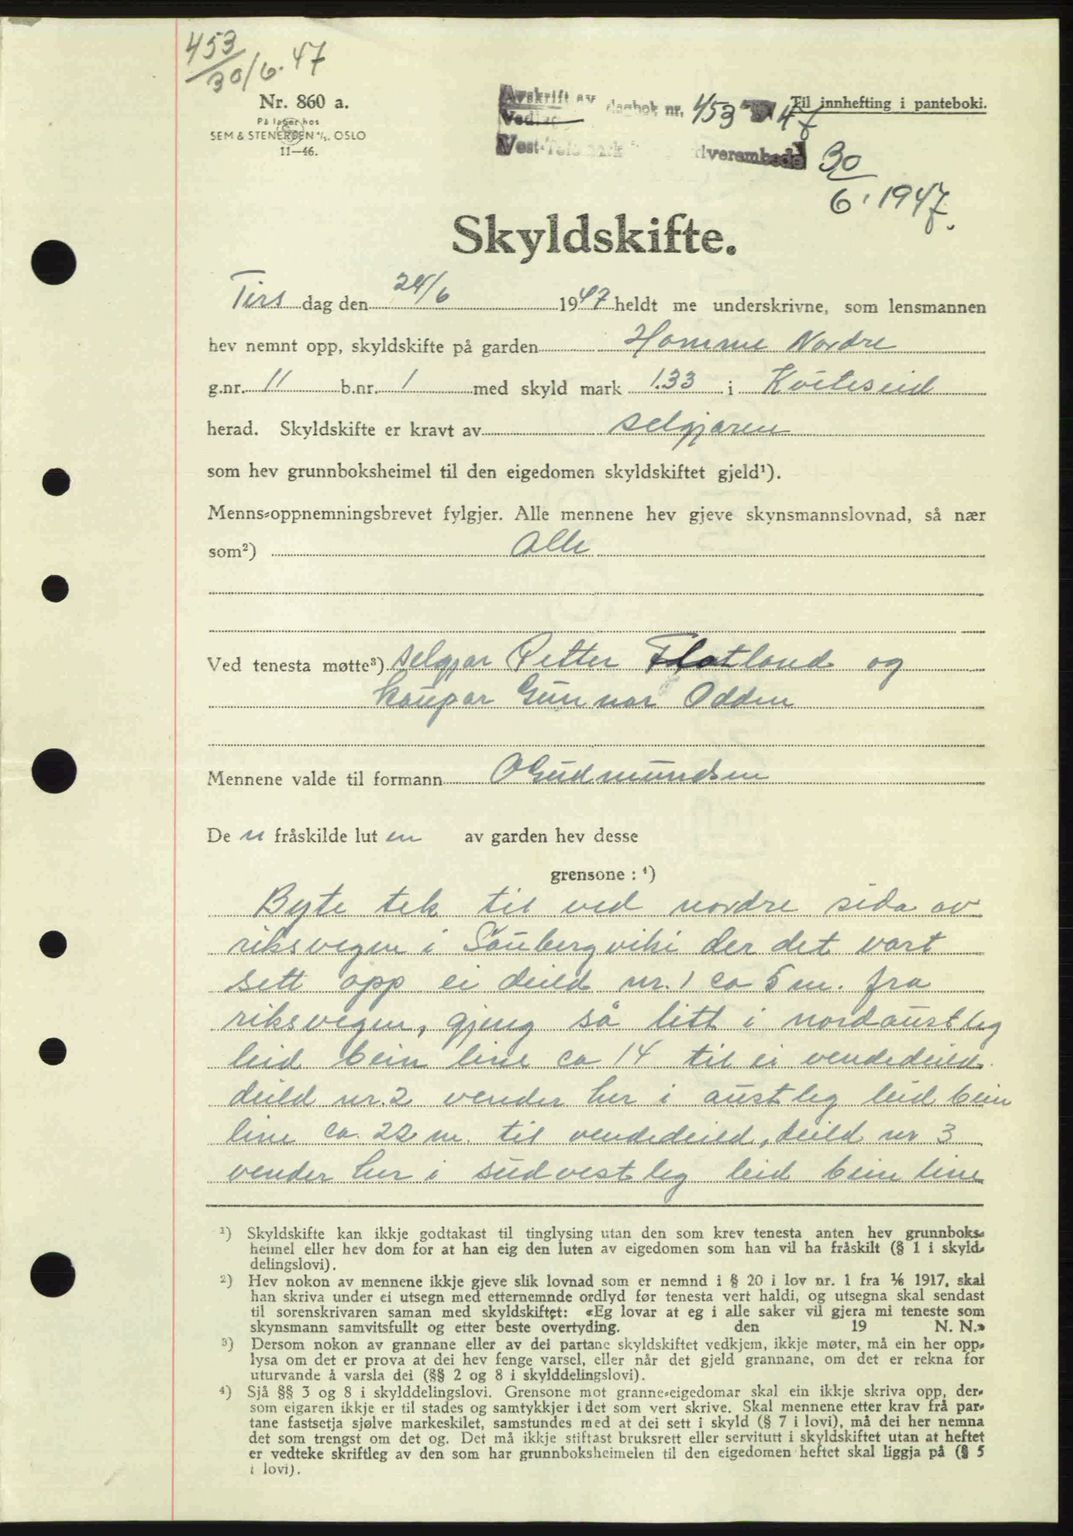 453
30/6.47
Nr. 860 a.
På lager hos
SEM & STENERSEN A/S. OSLO
11—46.
Avskrift av dagbok nr. 453 47
Til innhefting i panteboki.
30
6. 1947.
Skyldskifte.
Tirs dag den 24/6 1947 heldt me underskrivne, som lensmannen
hev nemnt opp, skyldskifte på garden Homme Nordre
g.nr. 11 b.nr. 1 med skyld mark 1.33 i Kviteseid
herad. Skyldskifte er kravt av selgjaren
som hev grunnboksheimel til den eigedomen skyldskiftet gjeld¹).
Menns-oppnemningsbrevet fylgjer. Alle mennene hev gjeve skynsmannslovnad, så nær
som²) Alle
Ved tenesta møtte³) selgjar Petter Flatland og
kaupar Gunnar Odden
Mennene valde til formann O Gudmundsen
De n fråskilde lut en av garden hev desse
grensone : ⁴)
Byte tek til ved nordre sida av
riksvegen i Saubergviki der det vart
sett opp ei deild nr. 1 ca 5 m. fra
riksvegen, gjeng så litt i nordaustleg
leid bein line ca. 14 til ei vendedeild.
deild nr. 2 vender her i austleg leid bein
line ca. 22 m. til vendedeild, deild nr 3
vender her i sudvestleg leid bein line
¹) Skyldskifte kan ikkje godtakast til tinglysing utan den som krev tenesta anten hev grunnboks-
heimel eller hev dom for at han eig den luten av eigedomen som han vil ha fråskilt (§ 1 i skyld-
delingslovi).
²) Hev nokon av mennene ikkje gjeve slik lovnad som er nemnd i § 20 i lov nr. 1 fra 1/6 1917, skal
han skriva under ei utsegn med etternemnde ordlyd før tenesta vert haldi, og utsegna skal sendast
til sorenskrivaren saman med skyldskiftet: «Eg lovar at eg i alle saker vil gjera mi teneste som
skynsmann samvitsfullt og etter beste overtyding. den 19 N. N.»
³) Dersom nokon av grannane eller av dei partane skyldskiftet vedkjem, ikkje møter, må ein her opp-
lysa om det er prova at dei hev fenge varsel, eller når det gjeld grannane, om det er rekna for
uturvande å varsla dei (§§ 2 og 8 i skylddelingslovi).
⁴) Sjå §§ 3 og 8 i skylddelingslovi. Grensone mot granne-eigedomar skal ein ikkje skriva opp, der-
som eigaren ikkje er til stades og samtykkjer i det som vert skrive. Skal mennene etter krav frå par-
tane fastsetja sjølve markeskilet, samstundes med at dei sett i skyld (§ 7 i lovi), må dei her nemna
det som trengst om det og. Det må ikkje stiftast bruksrett eller servitutt i skyldskiftet utan at heftet
er vedteke skriftleg av den som har grunnboksheimelen til den eigedomen heftet skal liggja på (§ 5
i lovi).